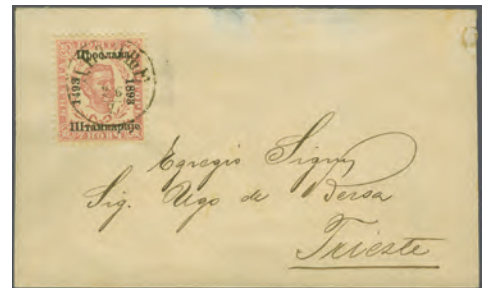 Прослава
1493 1893
Штампарије
Egregio Signor
Sig. Ugo de Persa
Trieste